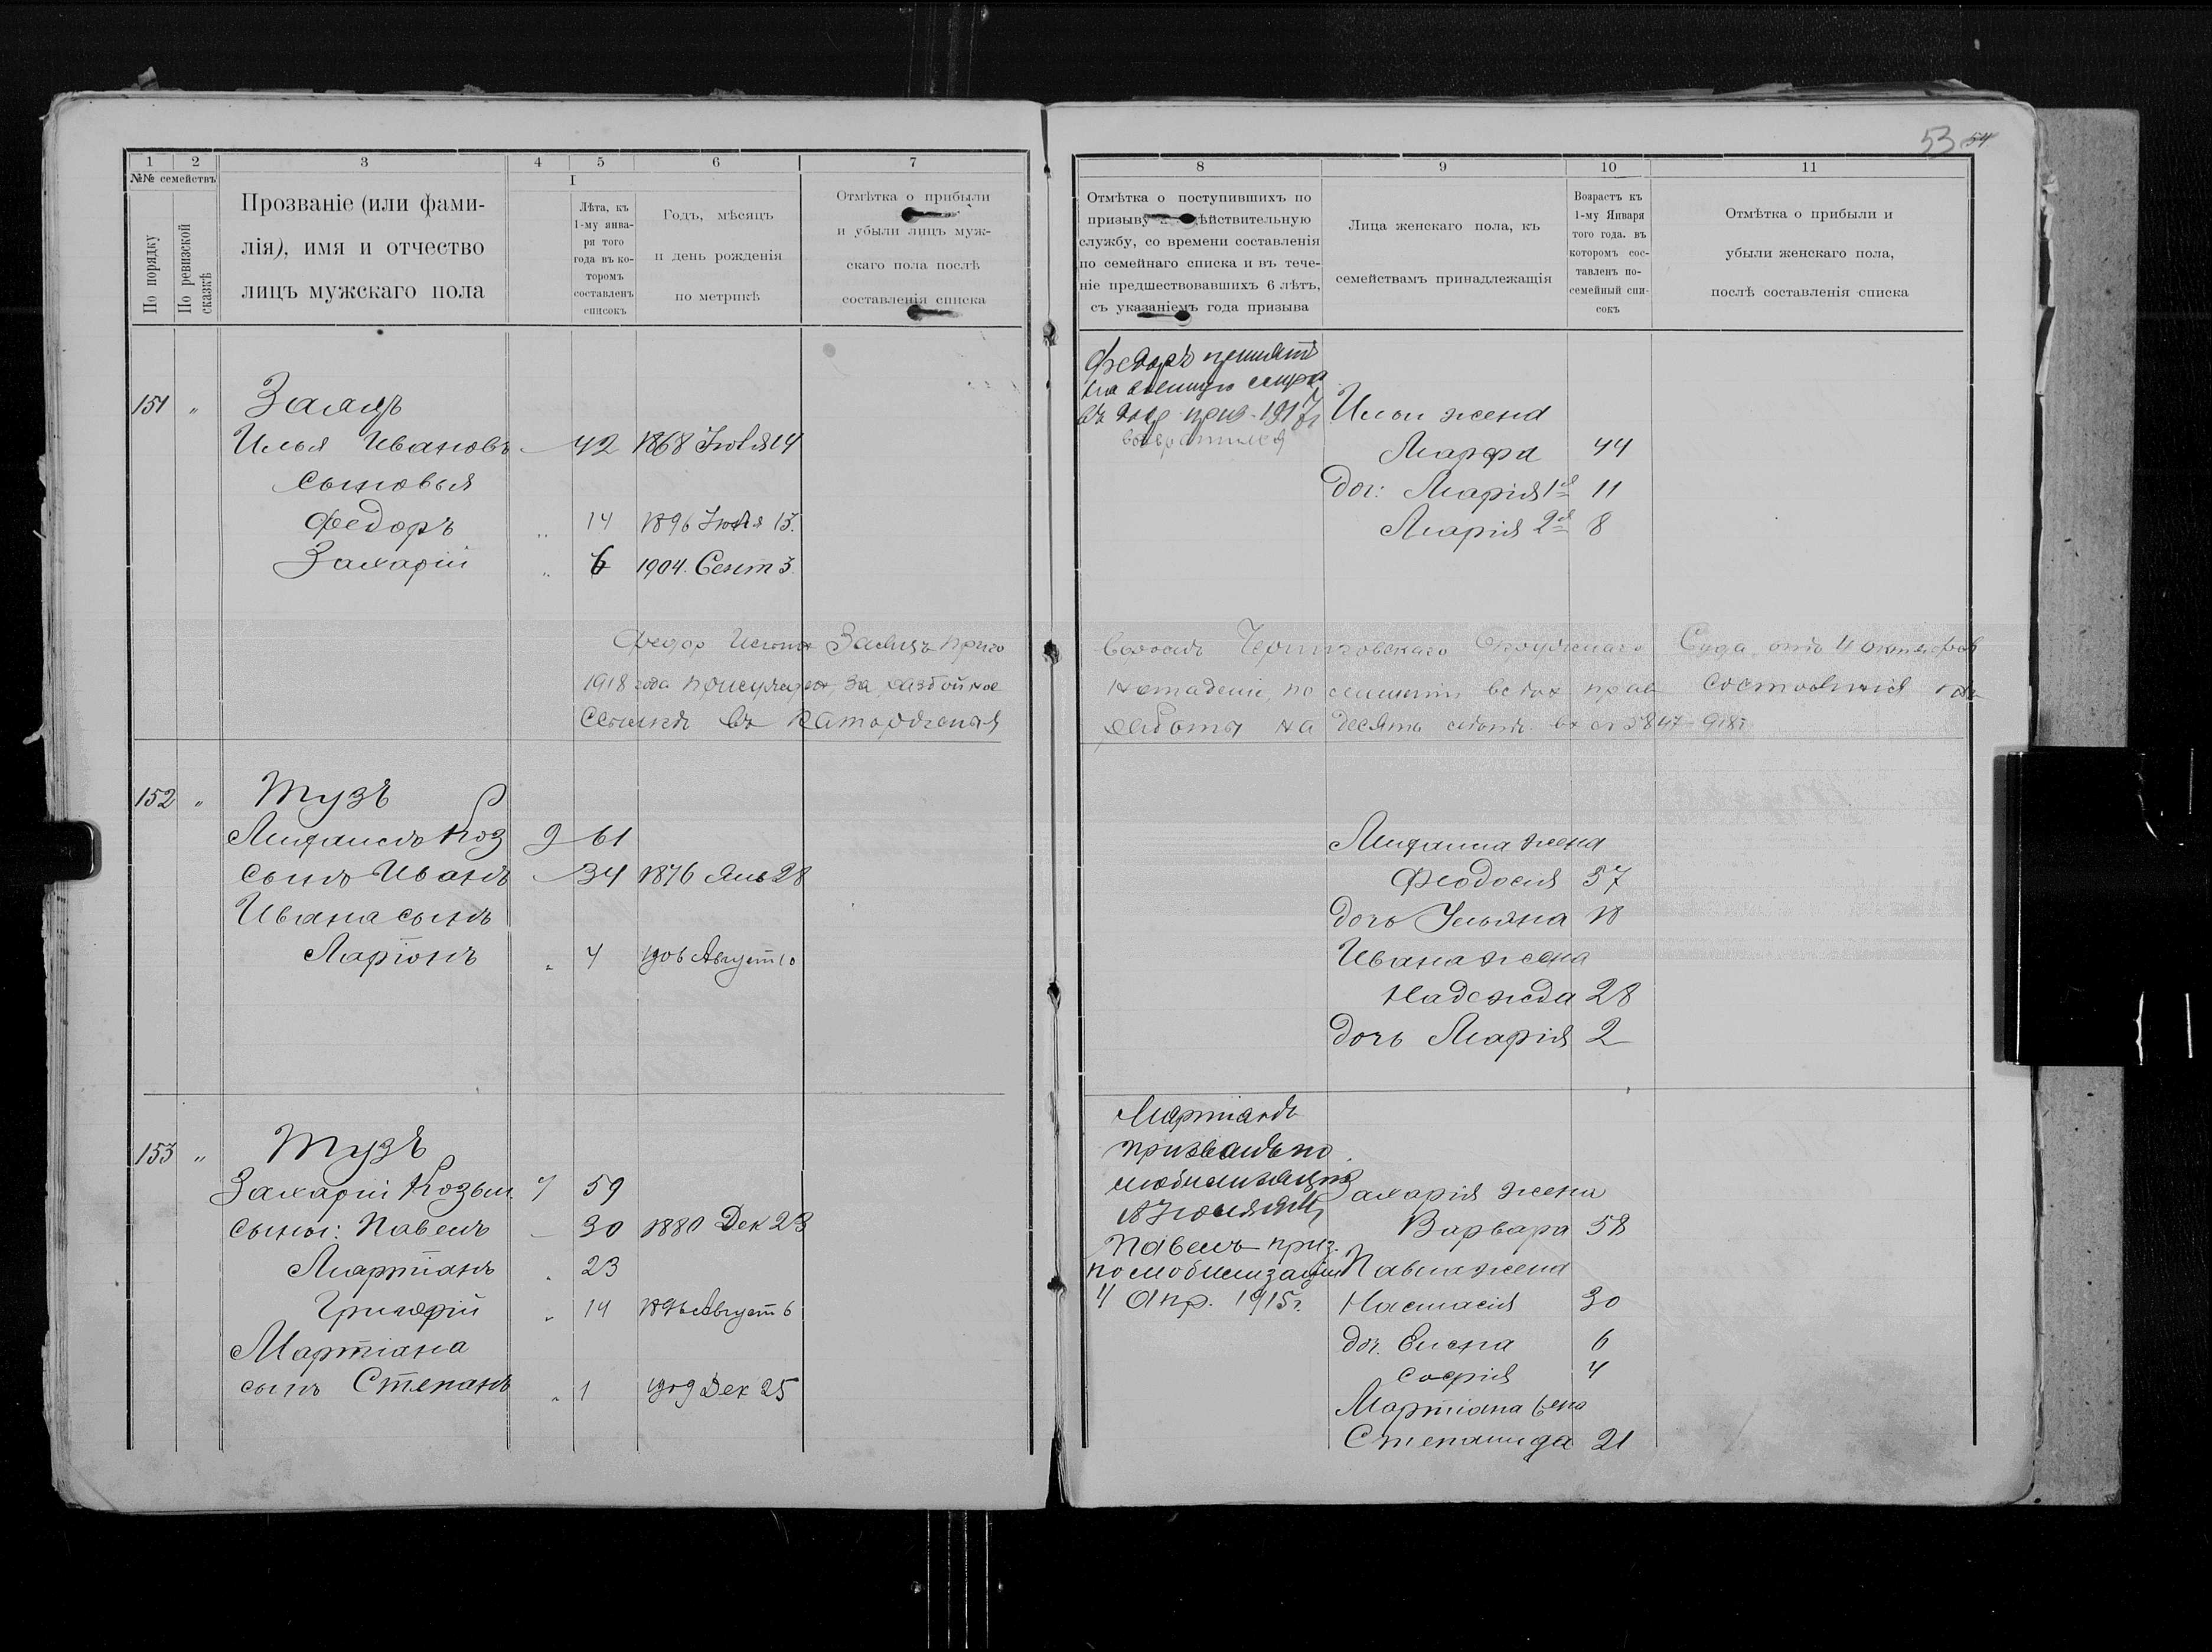 53 54
1 2 3 4 5 6 7
№№ семействъ
По порядку
По ревизской сказкѣ
Прозваніе (или фами-
лія), имя и отчество
лицъ мужскаго пола
I
Лѣта, къ
1-му янва-
ря того
года въ ко-
торомъ
составленъ
списокъ
Годъ, мѣсяцъ
и день рожденія
по метрикѣ
Отмѣтка о прибыли
и убыли лицъ муж-
скаго пола послѣ
составленія списка
151 " Заяцъ
Илья Ивановъ 42 1868 Іюля 14
сыновья
Федоръ " 14 1896 Іюля 13.
Захарій " 6 1904. Сент 3
Федор Заяцъ приго
1918 года присужден, за разбойное
въ каторжныя
152 " Тузъ
Коз 9 61
сынъ Иванъ 34 1876 Янв 28
Ивана сынъ
Ларіонъ " 4 1906 Август 10
153 " Тузъ
Захарій Козьм. 7 59
сыны: Павелъ 30 1880 Дек 23
Мартіанъ " 23
Григорій " 14 1896 Август 6
Мартіана
сынъ Степанъ " 1 1909 Дек 25
8 9 10 11
Отмѣтка о поступившихъ по
призыву ѣйствительную
службу, со времени составленія
по семейнаго списка и въ тече-
ніе предшествовавшихъ 6 лѣтъ,
съ указаніемъ года призыва
Лица женскаго пола, къ
семействамъ принадлежащія
Возрастъ къ
1-му Января
того года. въ
которомъ сос-
тавленъ по-
семейный спи-
сокъ
Отмѣтка о прибыли и
убыли женскаго пола,
послѣ составленія списка
Федоръ принятъ
на военную
въ 1917 г
возвратился
Ильи жена
Марфа 44
доч: Марія 1я 11
Марія 2я 8
воромъ Черниговскаго Окружнаго Суда отъ 4 октября
нападеніе, по лишеніи всѣх прав состоянія
работы на десять лѣтъ.
жена
Феодосія 57
дочь Ульяна 18
Ивана жена
Надежда 28
дочь Марія 2
Мартіанъ
призванъ по
мобилизаціи
18 Іюля
Павелъ приз.
по мобилизаціи
4 Апр. 1915 г.
Захарія жена
Варвара 58
Павла жена
Настасія 30
доч. Елена 6
Софія 4
Мартіана жена
Степанида 21